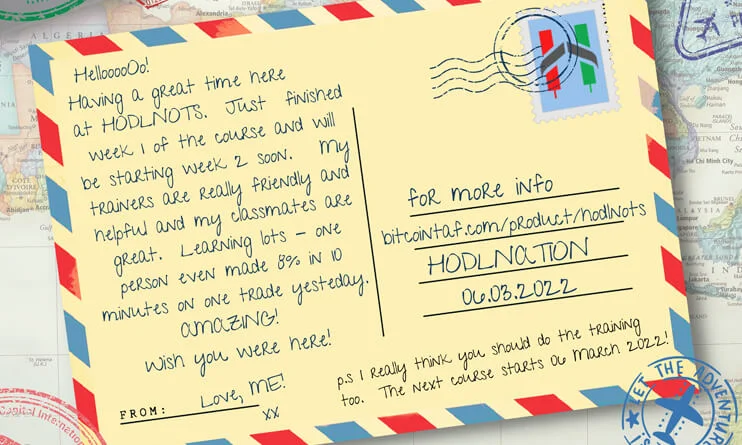 HelloooOo!
Having a great time here
at HODLNOTS. Just finished
week 1 of the course and will
be starting week 2 soon. My
trainers are really friendly and
helpful and my classmates are
great. Learning lots – one
person even made 8% in 10
minutes on one trade yesteday.
AMAZING!
Wish you were here!
Love, ME!
FROM:
xx
for more info
bitcointaf.com/product/hodlnots
HODLNATION
06.03.2022
p.s I really think you should do the training
too. The next course starts 06 March 2022!
LET THE ADVENTUR
Capital Internation
Alexandria
CÔTE
D'IVOIRE
Abidjan
Accra
Da Nang
Ho Chi Minh City
MALAYSIA
Surabaya